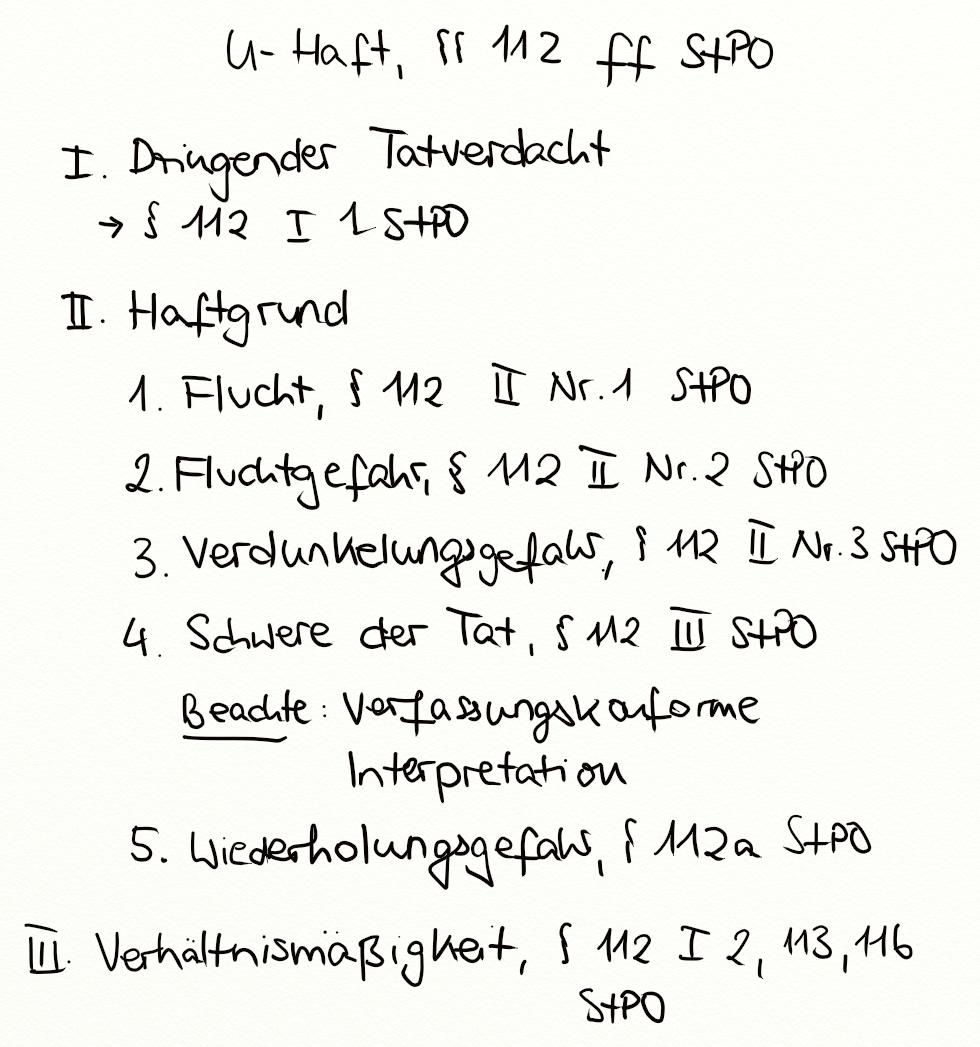 U-Haft, §§ 112 ff StPO
I. Dringender Tatverdacht
→ § 112 I 1 StPO
II. Haftgrund
1. Flucht, § 112 II Nr. 1 StPO
2. Fluchtgefahr, § 112 II Nr. 2 StPO
3. Verdunkelungsgefahr, § 112 II Nr. 3 StPO
4. Schwere der Tat, § 112 III StPO
Beachte: Verfassungskonforme
Interpretation
5. Wiederholungsgefahr, § 112a StPO
III. Verhältnismäßigkeit, § 112 I 2, 113, 116
StPO